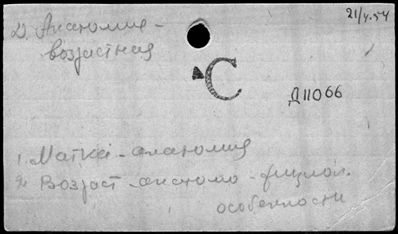 2) Анатомия -
возрастная
21/V.54
С
Д11066
1. Матка - анатомия
2. Возраст - анатомо - физиол.
особенности